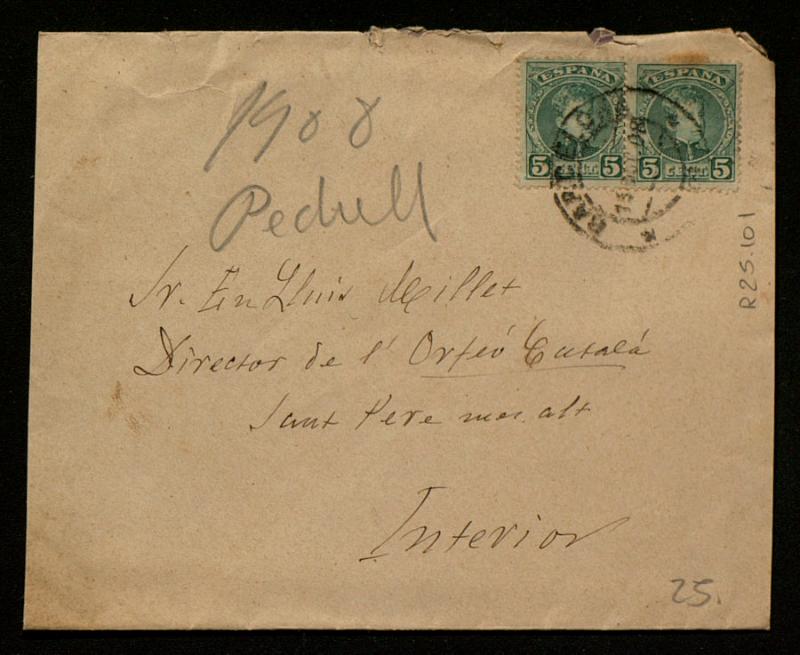 1908
Pedrell
ESPAÑA
5 5
ESPAÑA
5 5
BARCELO
Sr. En Lluis Millet
Director de l' Orfeó Catalá
Sant Pere mes alt
Interior
25.
R25.101